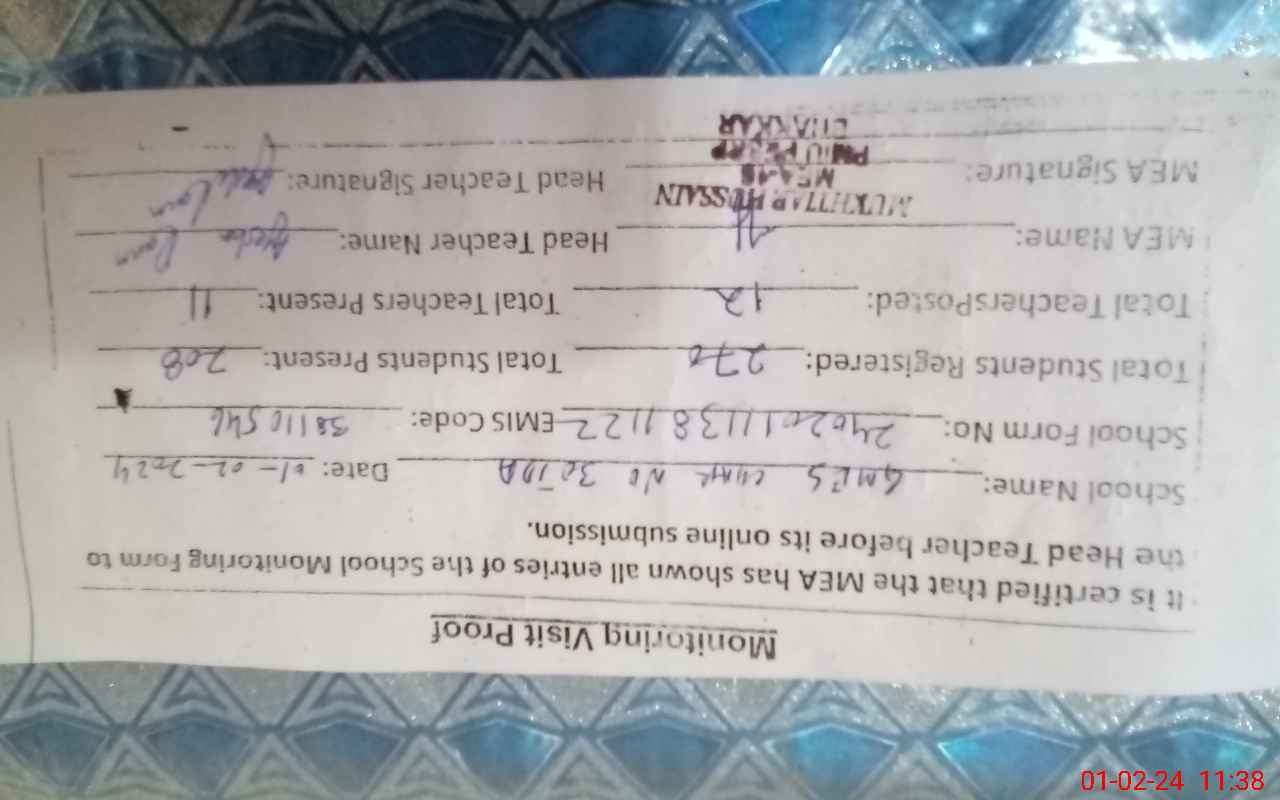 Monitoring Visit Proof
It is certified that the MEA has shown all entries of the School Monitoring Form to
the Head Teacher before its online submission.
School Name: GMES CHAK NO 30TDA Date: 01-02-2024
School Form No: 24020111381122 EMIS Code: 38110546
Total Students Registered: 270 Total Students Present: 208
Total TeachersPosted: 12 Total Teachers Present: 11
MEA Name: Head Teacher Name:
MUKHTIAR HUSSAIN
MEA Signature: Head Teacher Signature:
BHAKKAR
01-02-24 11:38